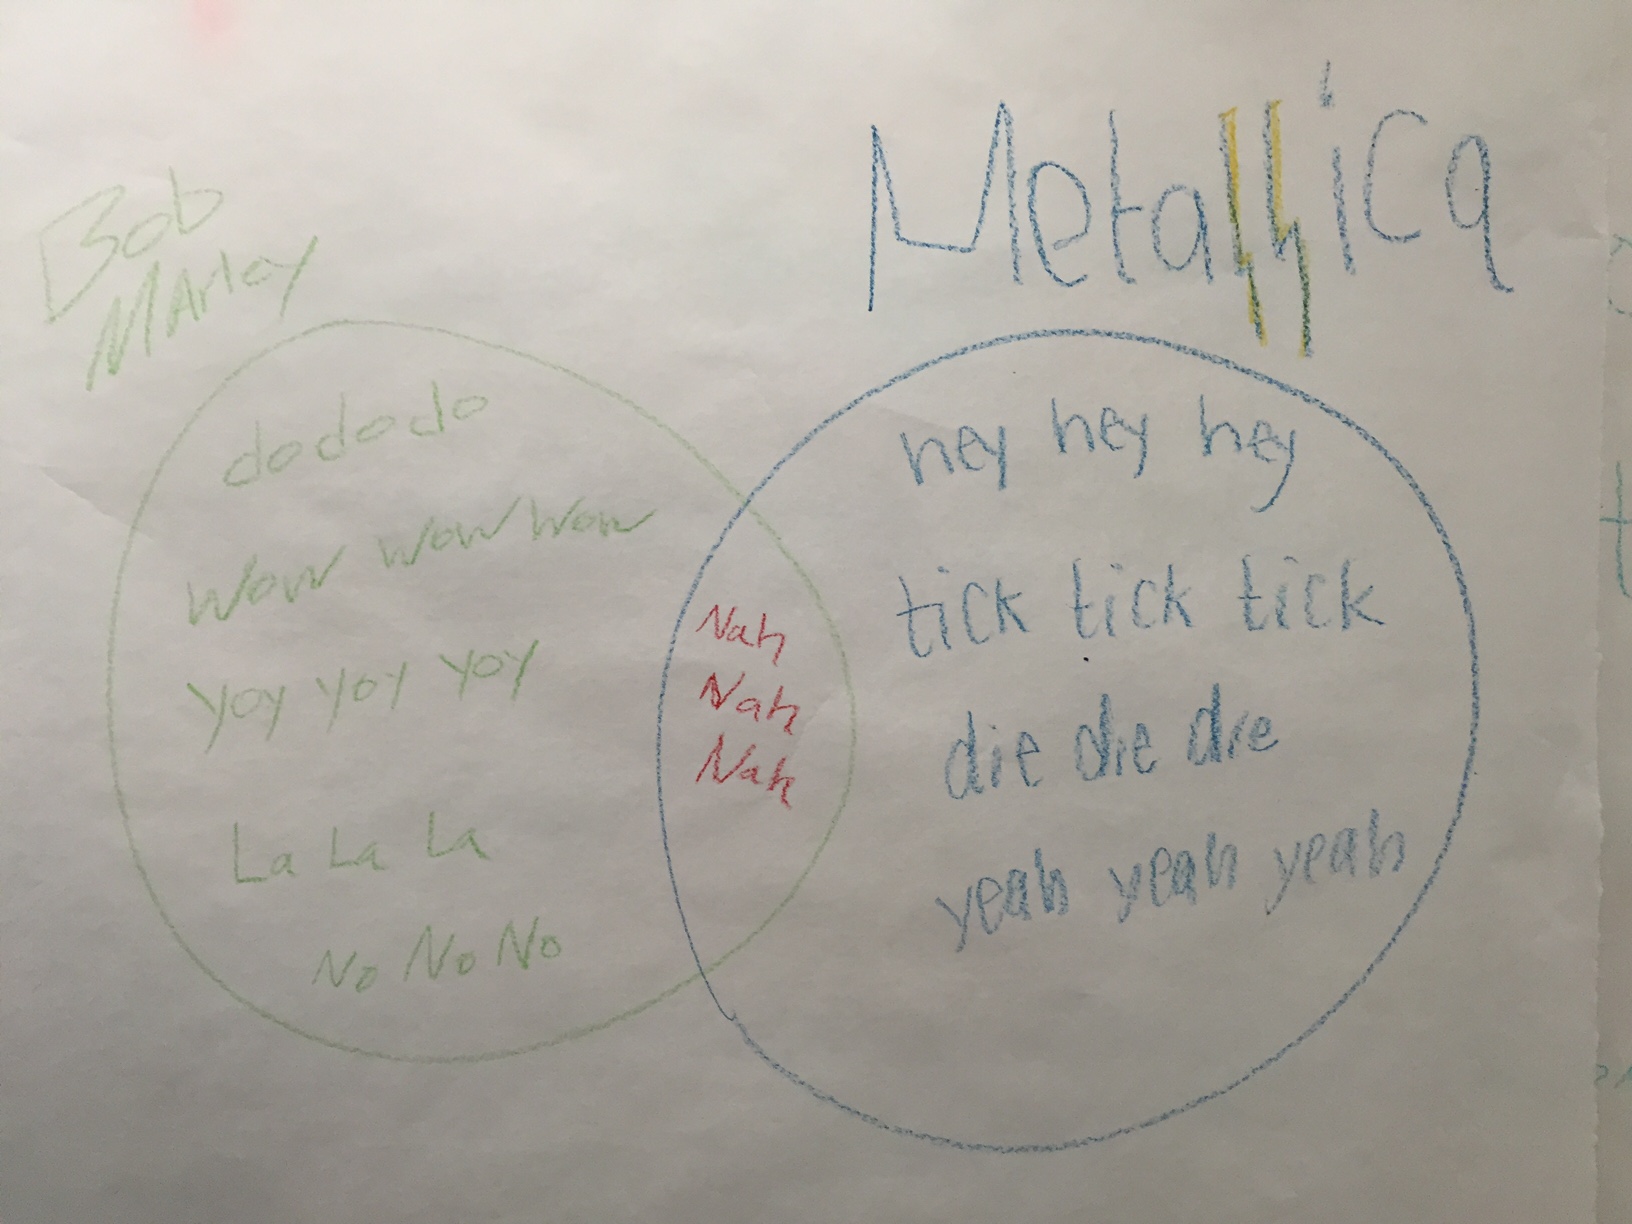 Bob
Marley
Metallica
dododo
wow wow wow
yoy yoy yoy
La La La
No No No
Nah
Nah
Nah
hey hey hey
tick tick tick
die die die
yeah yeah yeah